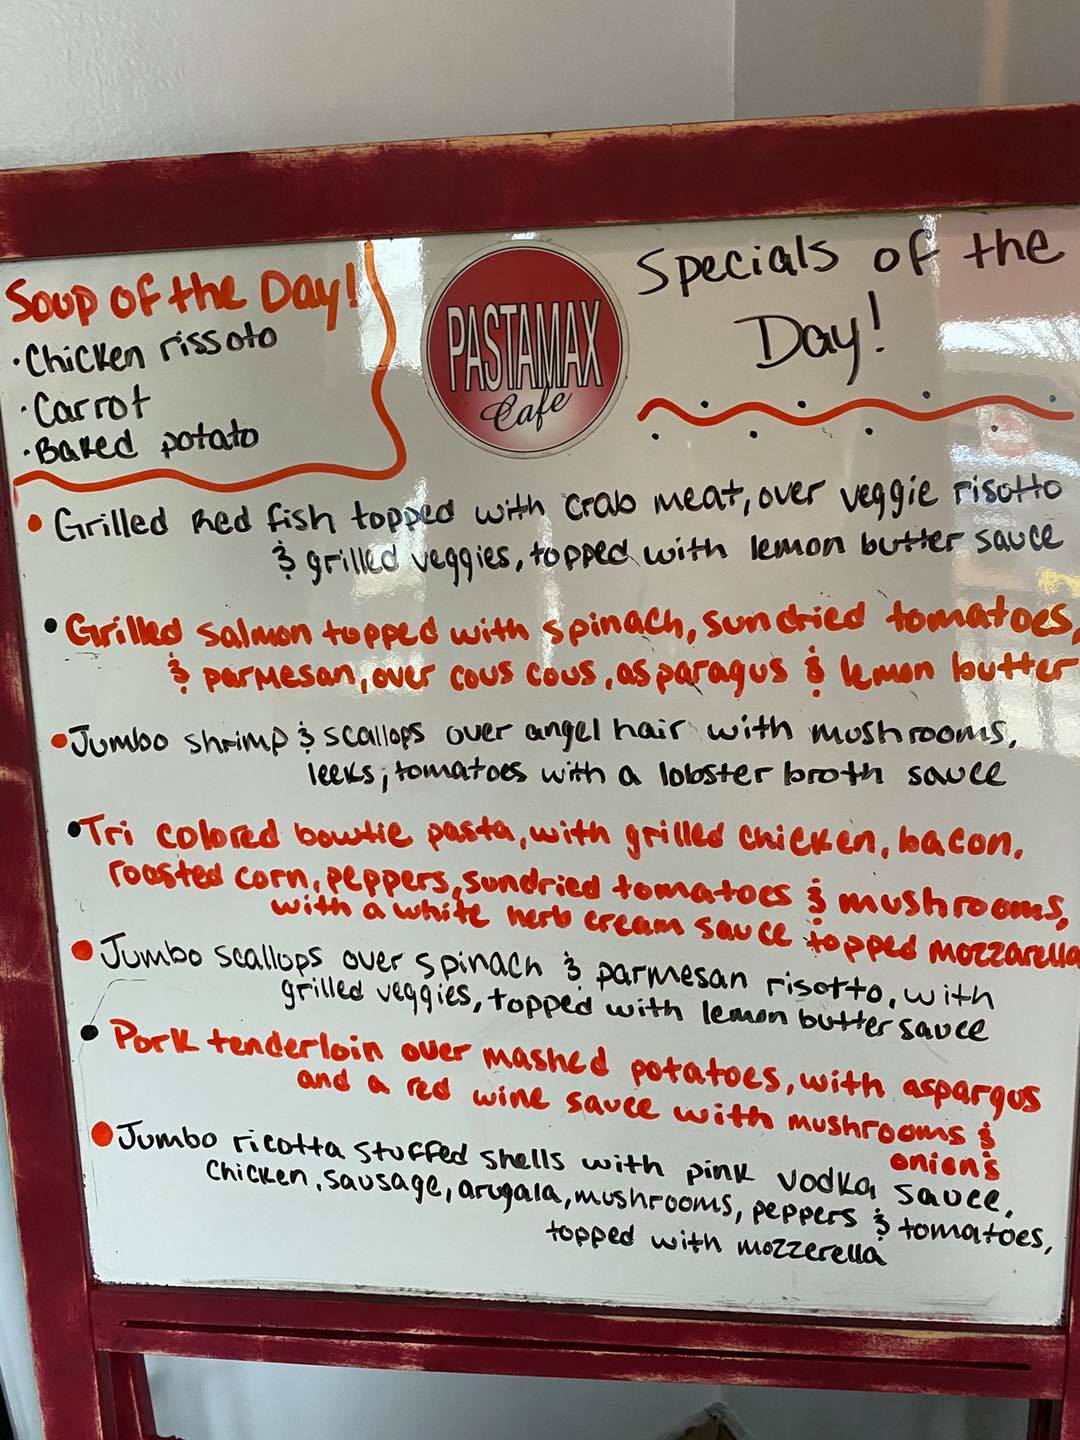 Soup of the Day!
• Chicken rissoto
• Carrot
• Baked potato
PASTAMAX
Cafe
Specials of the
Day!
• Grilled Red fish topped with crab meat, over veggie risotto
& grilled veggies, topped with lemon butter sauce
• Grilled salmon topped with spinach, sundried tomatoes,
& parmesan, over cous cous, asparagus & lemon butter
• Jumbo shrimp & scallops over angel hair with mushrooms,
leeks, tomatoes with a lobster broth sauce
• Tri colored bowtie pasta, with grilled chicken, bacon,
roasted corn, peppers, sundried tomatoes & mushrooms,
with a white herb cream sauce topped mozzarella
• Jumbo scallops over spinach & parmesan risotto, with
grilled veggies, topped with lemon butter sauce
• Pork tenderloin over mashed potatoes, with aspargus
and a red wine sauce with mushrooms &
onion's
• Jumbo ricotta stuffed shells with pink vodka sauce,
chicken, sausage, arugala, mushrooms, peppers & tomatoes,
topped with mozzerella